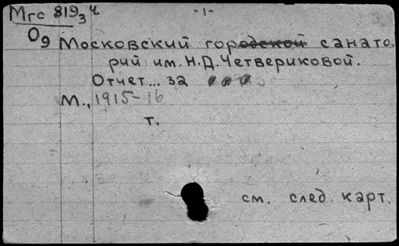 Мгс 819₃ч -1-
О9 Московский городской санато-
рий им. Н.Д. Четвериковой.
Отчет... за
М., 1915-16
т.
см. след. карт.